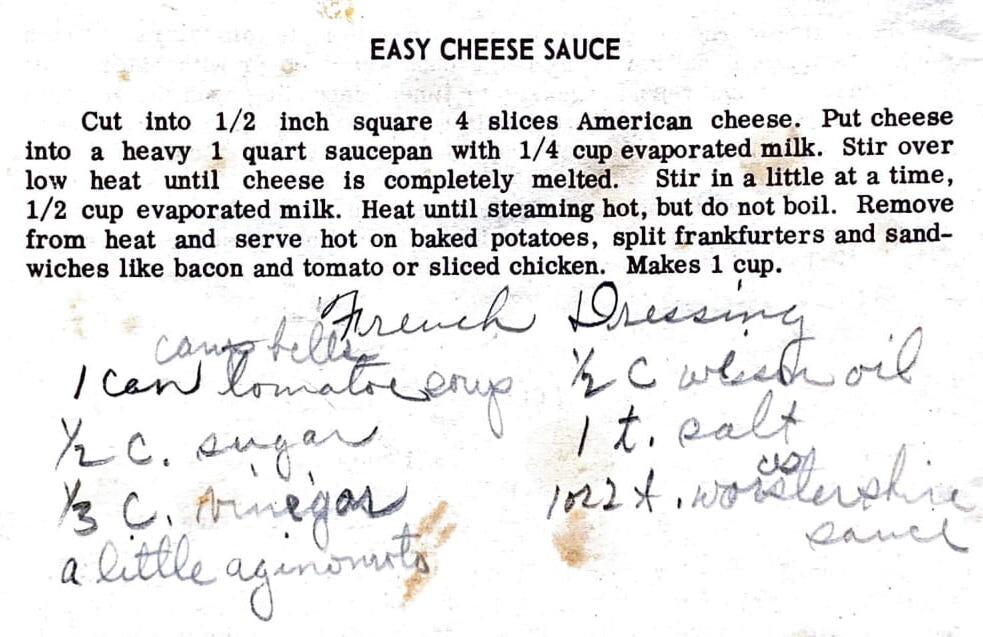 EASY CHEESE SAUCE
Cut into 1/2 inch square 4 slices American cheese. Put cheese
into a heavy 1 quart saucepan with 1/4 cup evaporated milk. Stir over
low heat until cheese is completely melted. Stir in a little at a time,
1/2 cup evaporated milk. Heat until steaming hot, but do not boil. Remove
from heat and serve hot on baked potatoes, split frankfurters and sand-
wiches like bacon and tomato or sliced chicken. Makes 1 cup.
French Dressing
campbells
1 can tomatoe soup
1/2 C. sugar
1/3 C. vinegar
a little aginomoto
1/2 C wesson oil
1 t. salt
1 or 2 t.
sauce